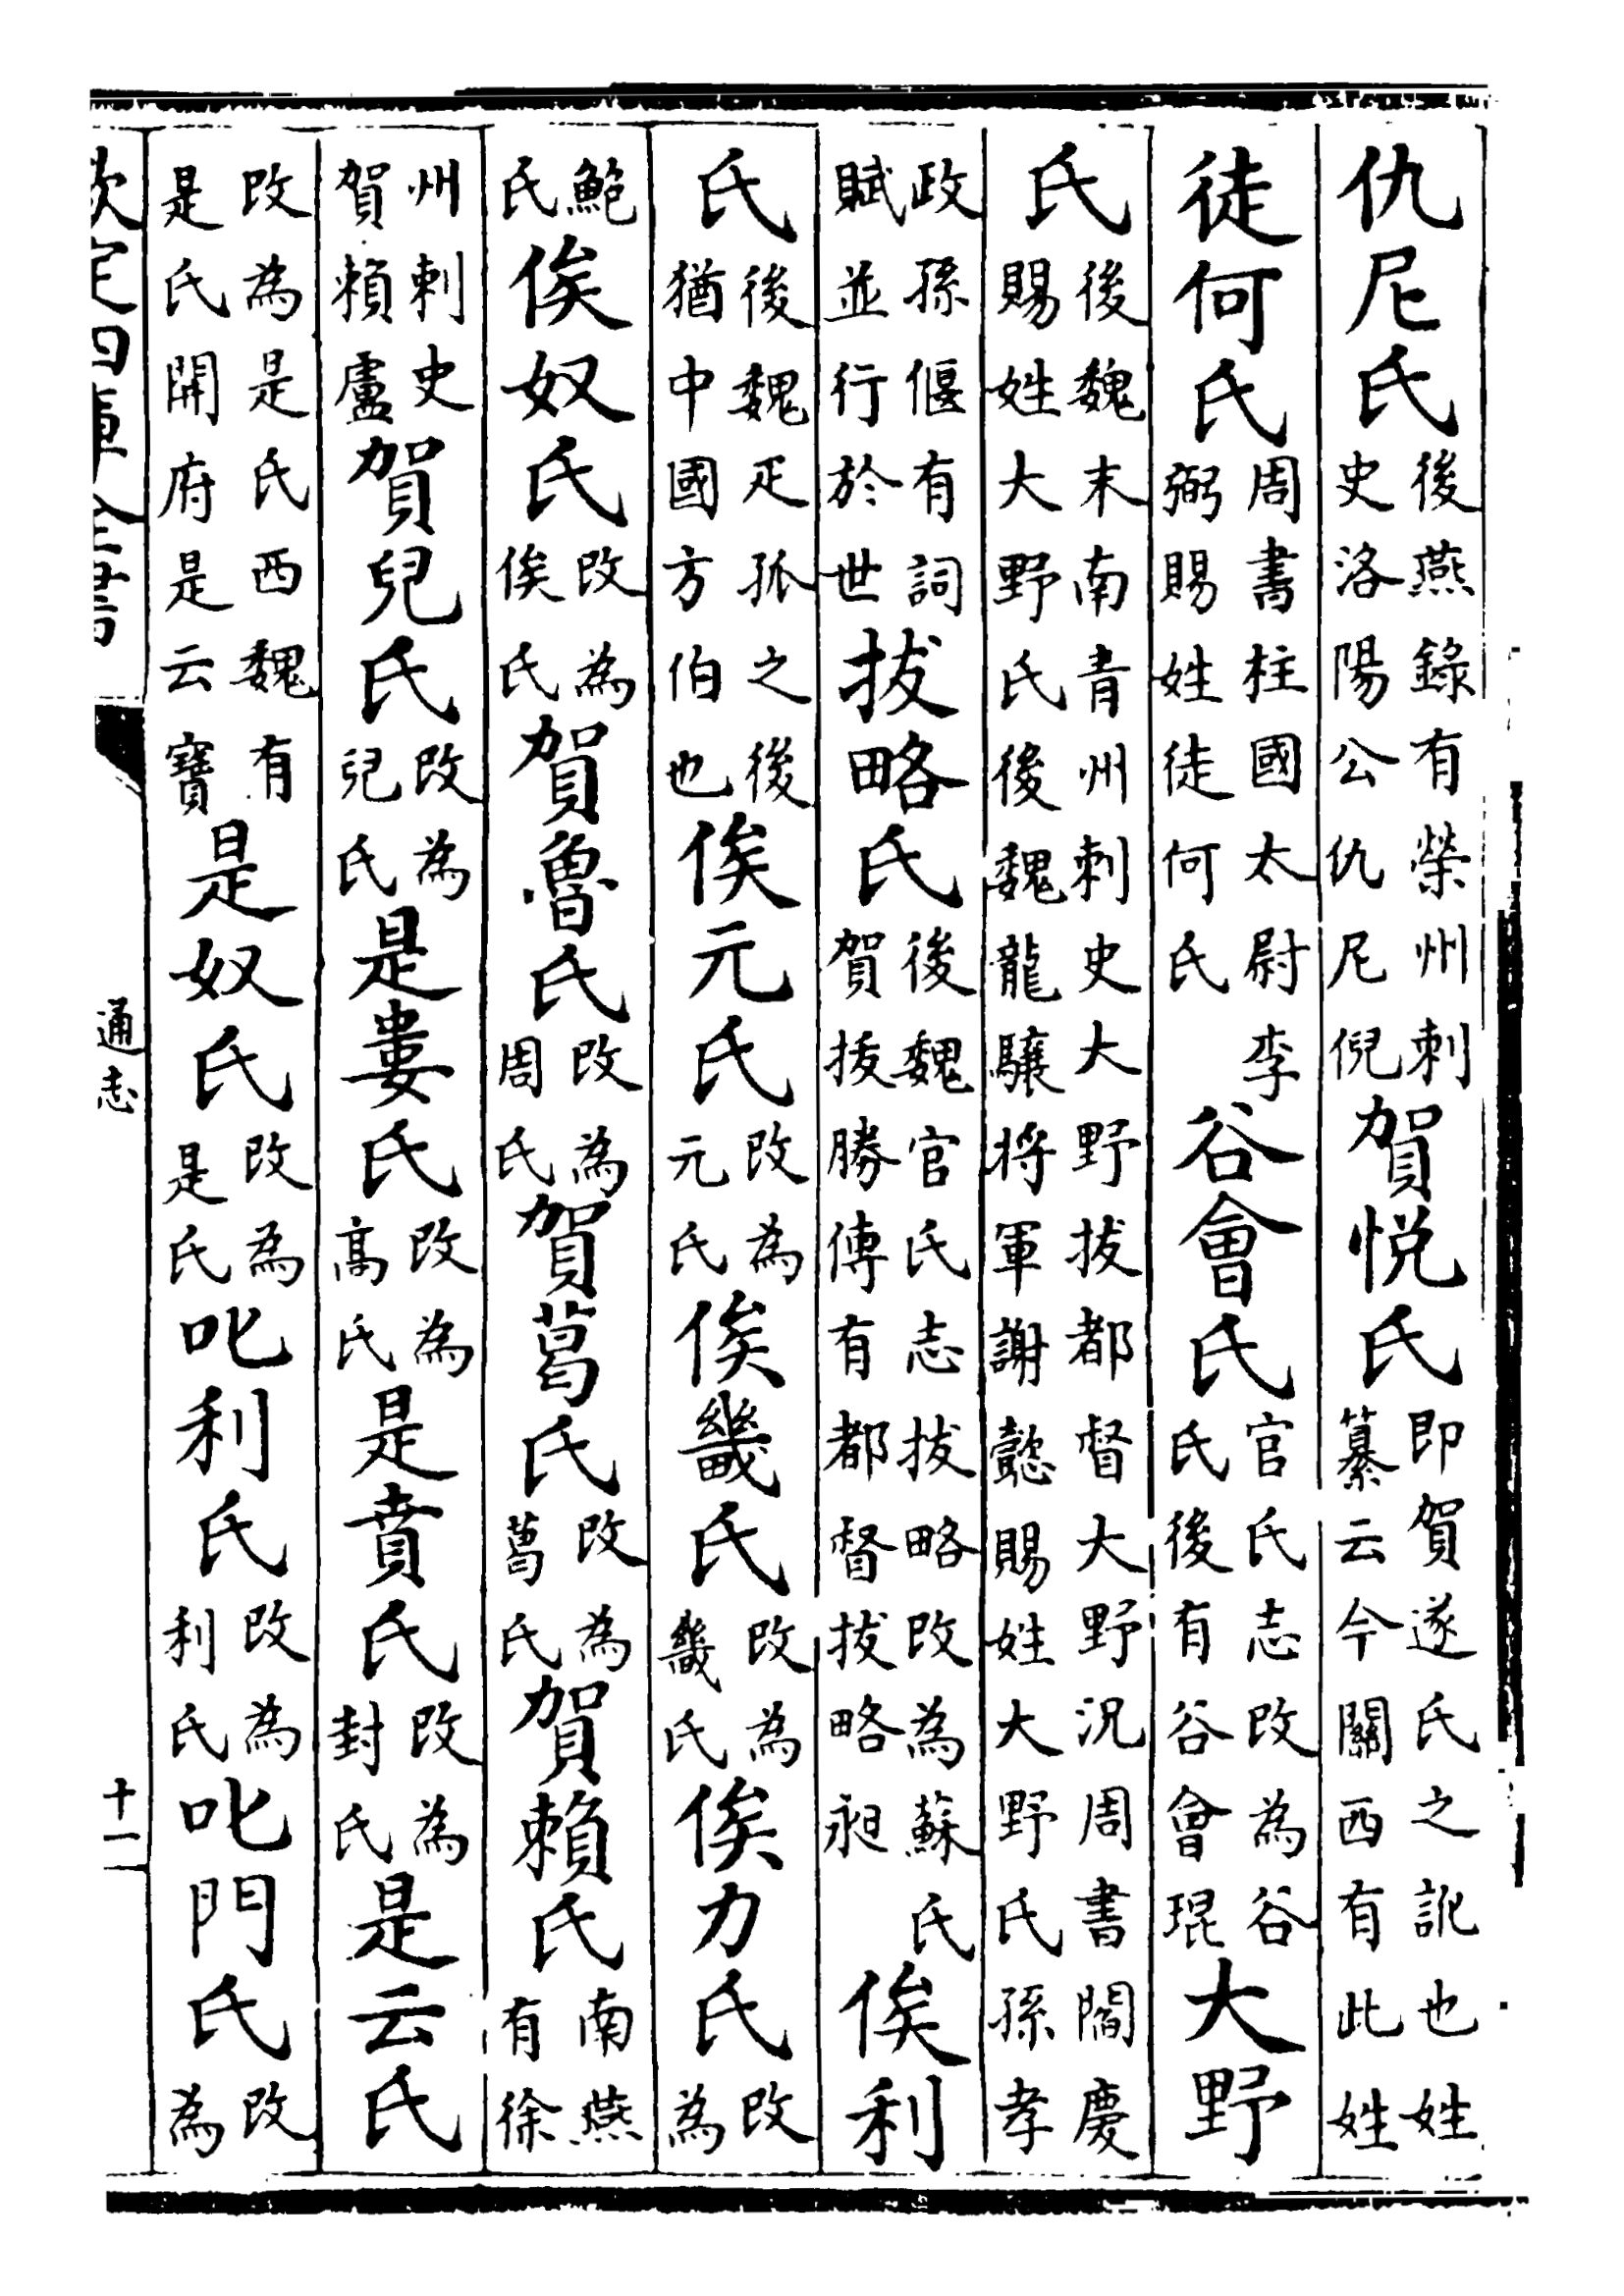 仇尼氏後燕錄有榮州刺史洛陽公仇尼倪賀悅氏即賀遂氏之訛也姓纂云今關西有此姓
徒何氏周書柱國太尉李弼賜姓徒何氏谷會氏官氏志改為谷氏後有谷會琨大野
氏後魏末南青州刺史大野拔都督大野況周書閻慶賜姓大野氏後魏龍驤将軍謝懿賜姓大野氏孫孝
政孫偃有詞賦並行於世拔略氏後魏官氏志拔略改為蘇氏賀拔勝傳有都督拔略昶俟利
氏後魏疋孤之後猶中國方伯也俟元氏改為元氏俟畿氏改為畿氏俟力氏改為
鮑氏俟奴氏改為俟氏賀魯氏改為周氏賀葛氏改為葛氏賀賴氏南燕有徐
州刺史賀賴盧賀兒氏改為兒氏是婁氏改為高氏是賁氏改為封氏是云氏
改為是氏西魏有是氏開府是云寶是奴氏改為是氏叱利氏改為利氏叱門氏改為
欽定四庫全書
通志
十一